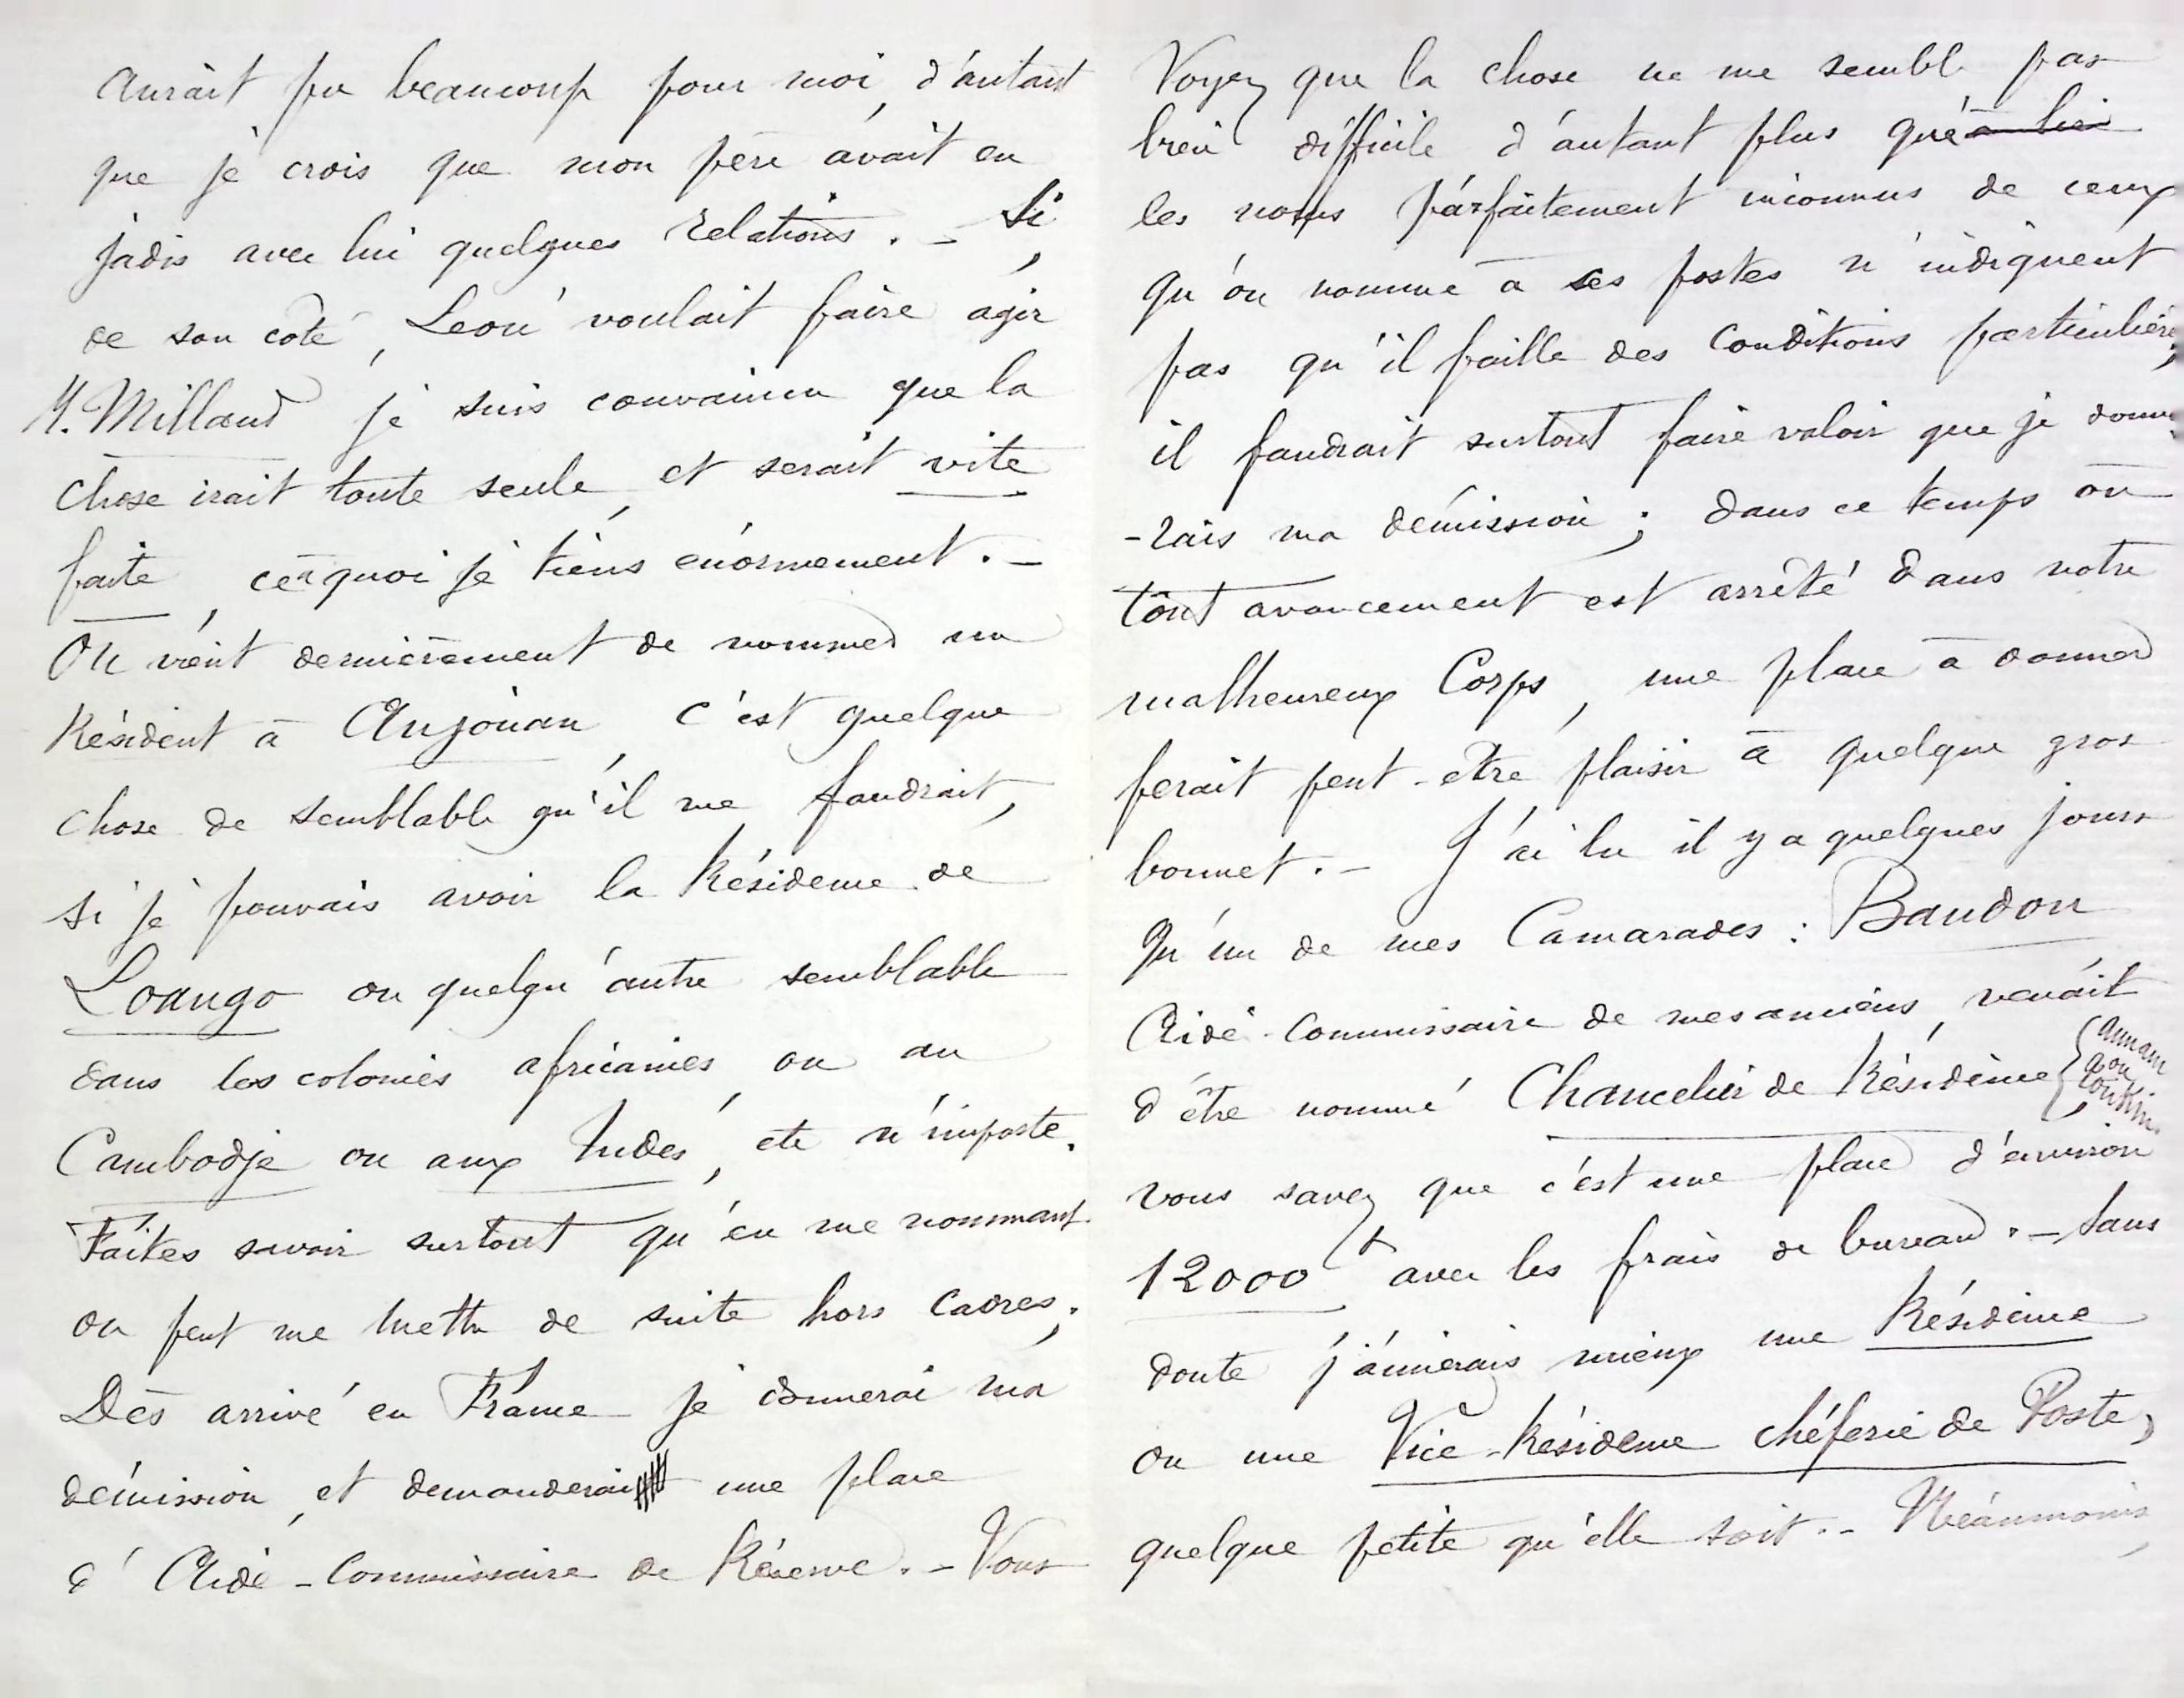 aurait pu beaucoup pour moi, d'autant
que je crois que mon père avait eu
jadis avec lui quelques relations. – Si,
de son côté, Léon voulait faire agir
M. Millaud je suis convaincu que la
chose irait toute seule, et serait vite
faite, ce à quoi je tiens énormément. –
On vient dernièrement de nommer un
Résident à Anjouan, c'est quelque
chose de semblable qu'il me faudrait,
si je pouvais avoir la Résidence de
Loango ou quelqu'autre semblable
dans les colonies africaines, ou au
Cambodje ou aux Indes, etc n'importe.
Faites savoir surtout qu'en me nommant
on peut me mettre de suite hors cadres;
Dès arrivé en France je donnerai ma
démission, et demanderai une place
d'Aide-Commissaire de Réserve. – Vous
Voyez que la chose ne me semble pas
bien difficile d'autant plus que
les noms parfaitement inconnus de ceux
qu'on nomme à ses postes n'indiquent
pas qu'il faille des conditions particulières,
il faudrait surtout faire valoir que je donne
-rais ma démission; dans ce temps où
tout avancement est arrêté dans notre
malheureux Corps, une place à donner
ferait peut-être plaisir à quelque gros
bonnet. – J'ai lu il y a quelques jours
qu'un de mes Camarades: Baudon
Aide-Commissaire de mes anciens, venait
d'être nommé Chancelier de Résidence (Annam
ou
Tonkin.
vous savez que c'est une place d'environ
12000f avec les frais de bureau. – Sans
doute j'aimerais mieux une Résidence
ou une Vice-Résidence chéferie de Poste,
quelque petite qu'elle soit. – Néanmoins,